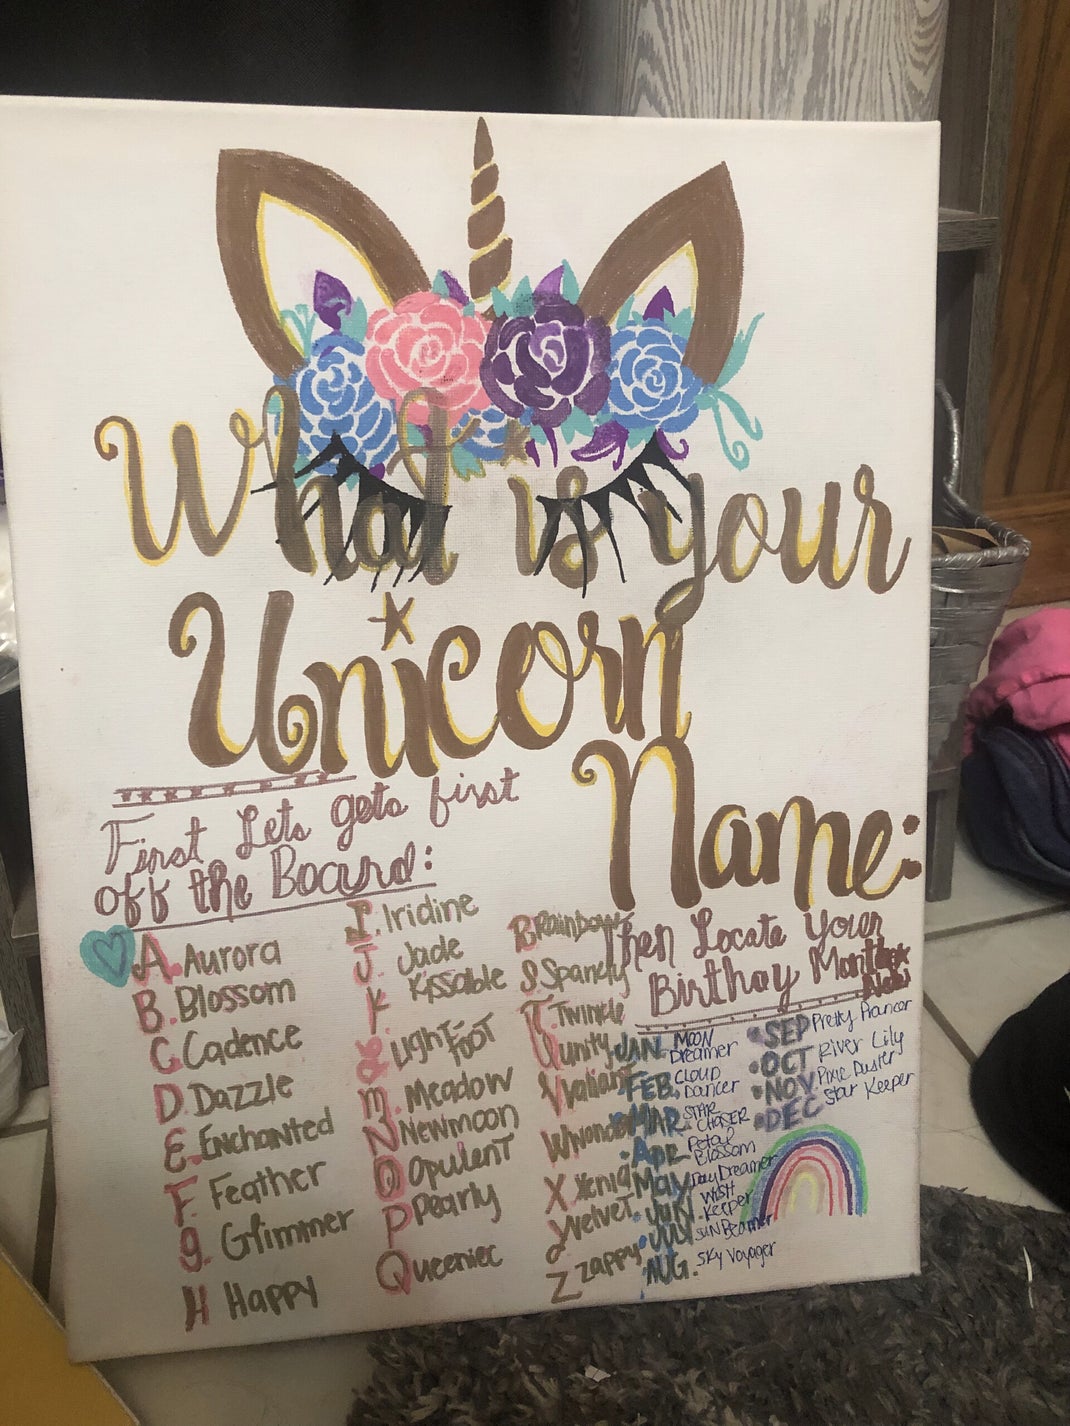 What is your
Unicorn
Name:
First Lets gets first
off the Board:
A. Aurora
B. Blossom
C. Cadence
D. Dazzle
E. Enchanted
F. Feather
g. Glimmer
H Happy
I. Iridine
J. Jade
K Kissable
LightFoot
m. Meadow
N Newmoon
O Opulent
P Pearly
Queeniec
R Rainbow
S. Spandy
T. Twinkle
U unity
V valiant
W Wonder
X Xenia
y velvet
Z zappy
Then Locate Your
Birthay Month
JAN. MOON Dreamer
FEB. CLOUD Dancer
MAR. STAR CHASER
Apr Petal Blossom
May Day Dreamer
JUN. WISH Keeper
JULY SUN Beamer
AUG. Sky Voyager
SEP Pretty Prancer
OCT River Lily
NOV. Pixie Duster
DEC Star Keeper